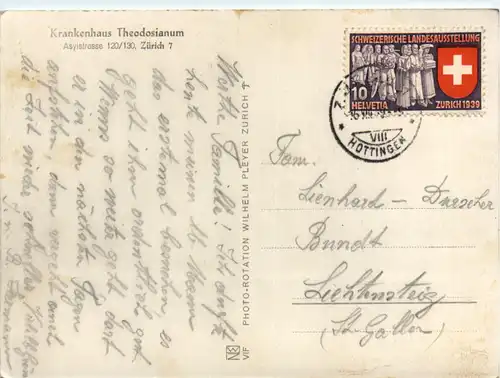 Krankenhaus Theodosianum
Asylstrasse 120/130, Zürich 7
Werthe Familie! Ich durfte
heute meinen lb Mann
das erstemal besuchen, es
geht ihm ordentlich gut
Wenns so weiter geht darf
er in den nächsten Tagen
aufstehen, dann vergeht auch
die Zeit wieder schneller
PHOTO-ROTATION WILHELM PLEYER ZURICH 7
VIF
SCHWEIZERISCHE LANDESAUSSTELLUNG
10 HELVETIA
ZURICH 1939
VIII
HOTTINGEN
Fam.
Lienhard - Drescher
Bundt
Lichtensteig
(St. Gallen)